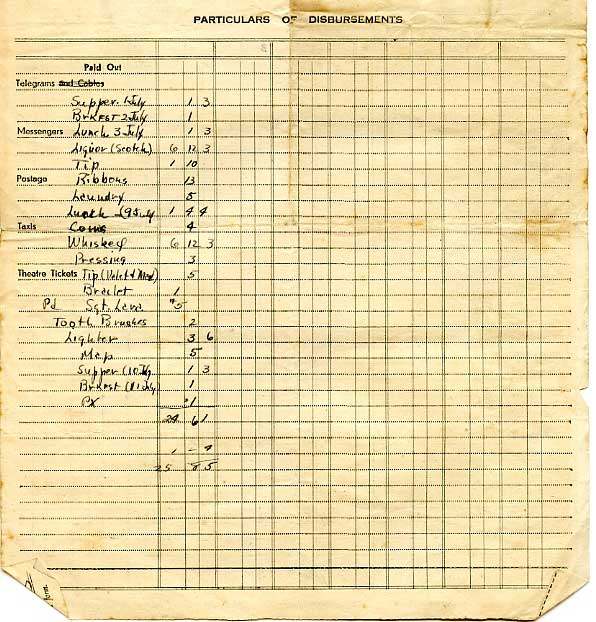 PARTICULARS OF DISBURSEMENTS
Paid Out
Telegrams and Cables
Supper. 1 July 1 3
Brkfst 2 July 1
Messengers Lunch 3 July 1 3
Liquor (Scotch) 6 12 3
Tip 1 10
Postage Ribbons 13
Laundry 5
Lunch July 1 4 4
Taxis 4
Whiskey 6 12 3
Pressing 3
Theatre Tickets Tip (Valet & Maid) 5
Braclet 1
Pd Sgt. $5
Tooth Brushes 2
Lighter 3 6
Map 5
Supper (10 July) 1 3
Brkfst (11 July) 1
PX 1
24 6 1
1 - 4
25 5